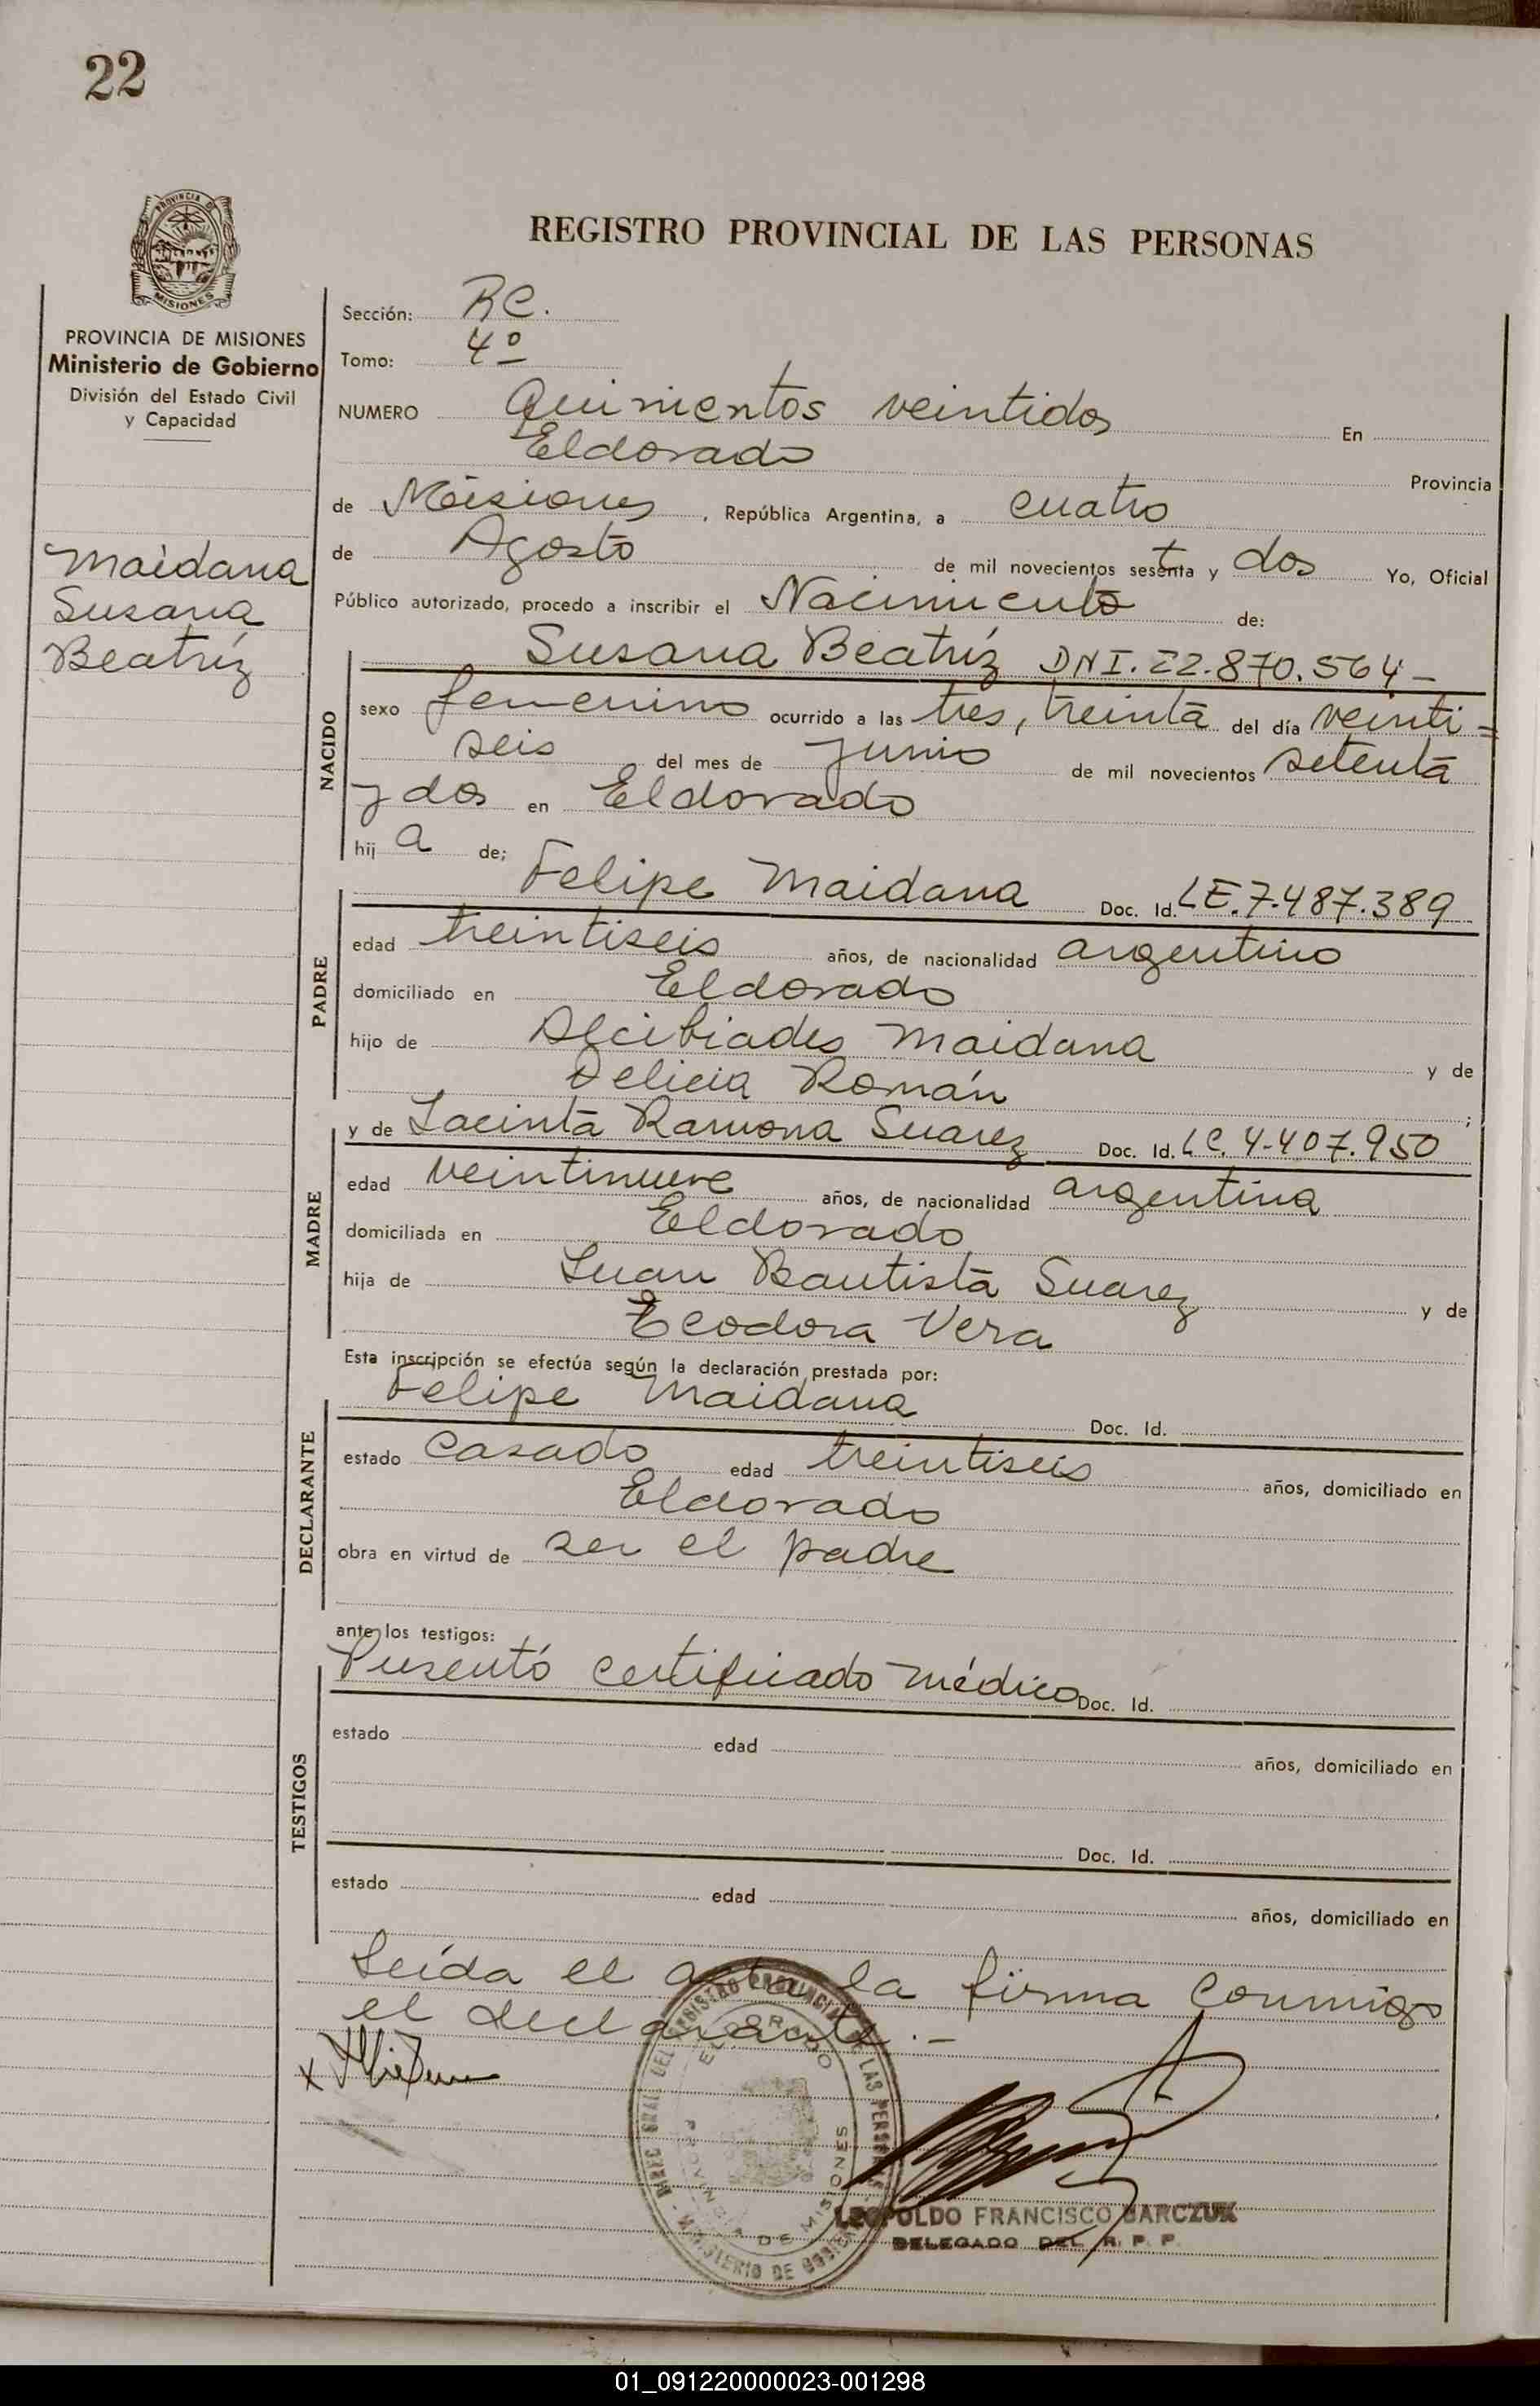 22
PROVINCIA DE
MISIONES
REGISTRO PROVINCIAL DE LAS PERSONAS
PROVINCIA DE MISIONES
Ministerio de Gobierno
División del Estado Civil
y Capacidad
Maidana
Susana
Beatríz
Sección: RC.
Tomo: 4º
NUMERO Quinientos veintidos En
Eldorado Provincia
de Misiones, República Argentina, a cuatro
de Agosto de mil novecientos setenta y dos Yo, Oficial
Público autorizado, procedo a inscribir el Nacimiento de:
NACIDO
Susana Beatríz DNI. 22.870.564-
sexo femenino ocurrido a las tres, treinta del día veinti=
seis del mes de junio de mil novecientos setenta
y dos en Eldorado
hij a de;
PADRE
Felipe Maidana Doc. Id. LE.7.487.389
edad treintiseis años, de nacionalidad argentino
domiciliado en Eldorado
hijo de Alcibiades Maidana y de
Delicia Román ;
MADRE
y de Jacinta Ramona Suarez Doc. Id. LC. 4.407.950
edad veintinueve años, de nacionalidad argentina
domiciliada en Eldorado
hija de Juan Bautista Suarez y de
Teodora Vera
Esta inscripción se efectúa según la declaración prestada por:
DECLARANTE
Felipe Maidana Doc. Id.
estado casado edad treintiseis años, domiciliado en
Eldorado
obra en virtud de ser el padre
ante los testigos:
TESTIGOS
Presentó certificado médico Doc. Id.
estado edad años, domiciliado en
Doc. Id.
estado edad años, domiciliado en
Leída el acta la firma conmigo
el declarante.-
x
REGISTRO PROVINCIAL DE LAS PERSONAS
ELDORADO
PROVINCIA DE MISIONES
MINISTERIO DE GOBIERNO
LEOPOLDO FRANCISCO JARCZUK
DELEGADO DEL R. P. P.
01_091220000023-001298